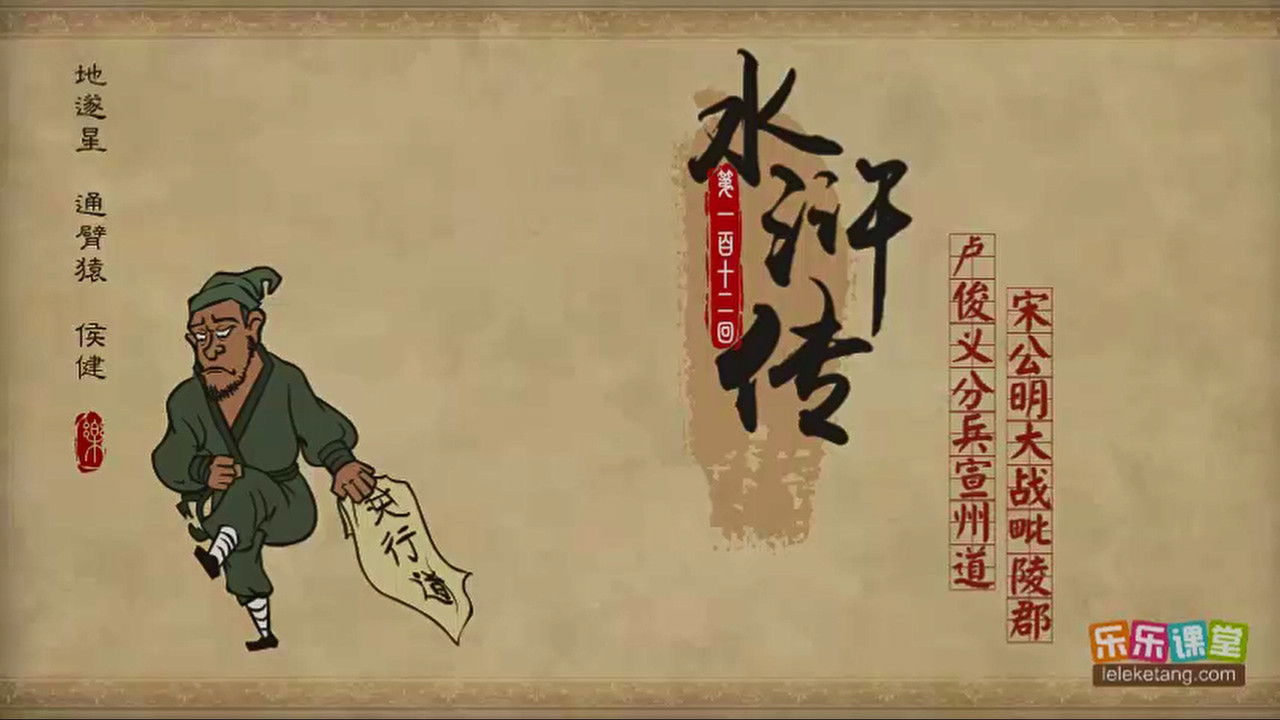 地遂星 通臂猿 侯健
行道
水浒传
第一百十二回
宋公明大战毗陵郡
卢俊义分兵宣州道
乐乐课堂
leleketang.com